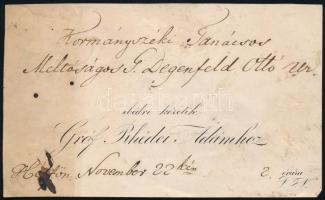 Kormányszéki Tanácsos
Méltóságos G. Degenfeld Ottó Ur.
ebédre kéretik
Gróf Rhédei Ádámhoz
Hétfőn November 22kén 2. órára